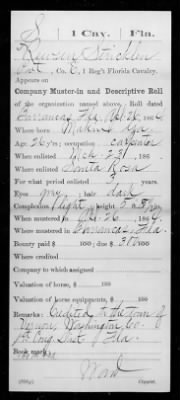 S | 1 Cav. | Fla.
Stricklin
Pvt., Co. C, 1 Reg't Florida Cavalry.
Appears on
Company Muster-in and Descriptive Roll
of the organization named above. Roll dated
Barrancas Fla. 26, 186
Where born Ga
Age 26 y'rs; occupation Carpenter
When enlisted Mch 23, 186
Where enlisted Santa Rosa
For what period enlisted 3 years.
Eyes gray; hair dark
Complexion light; height 5 ft. in.
When mustered in 26, 1864.
Where mustered in Barrancas, Fla.
Bounty paid $ 100; due $ 300 100
Where credited
Company to which assigned
Valuation of horse, $ 100
Valuation of horse equipments, $ 100
Remarks: Credited to the town of
Vernon, Washington Co.
1st Cong. Dist. of Fla.
Book mark:
Ward
Copyist.